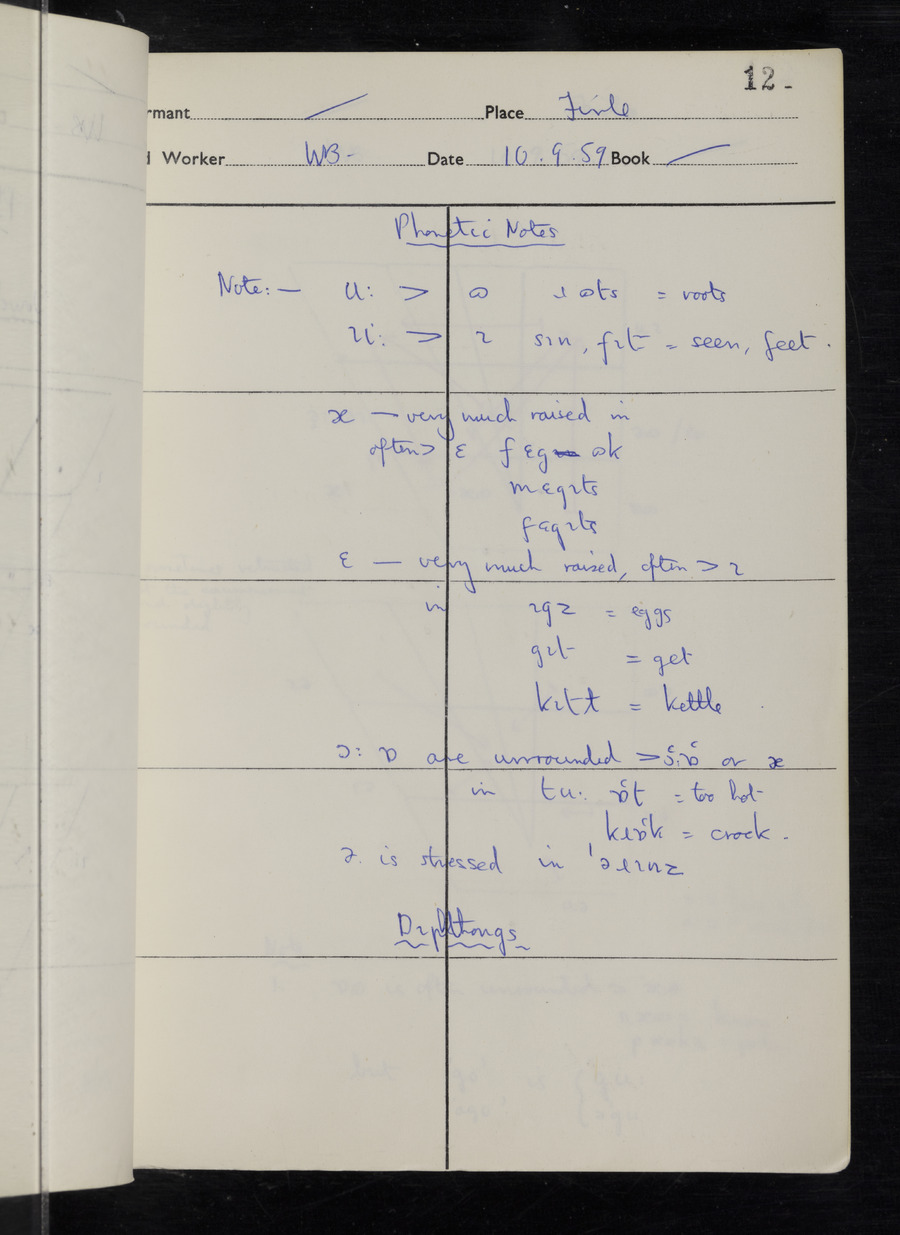 12-
rmant Place Firle
Worker WB- Date 10.9.59 Book
Phonetic Notes
Note:— u: > ɷ ɹɷts = roots
ɩi: > ɩ sɩn, fɩt = seen, feet.
æ — very much raised in
often > ɛ fɛg ɷk
mɛgɩts
fagɩts
ɛ — very much raised, often > ɩ
in ɩgz = eggs
gɩt = get
kɩtɫ = kettle
ɔ: ɒ are unrounded > ɔ̜: ɒ̜ or æ
in tu: ɒ̜t = too hot
kɹɒ̜k = crock.
ə is stressed in 'əɹɩnz
Dipthongs